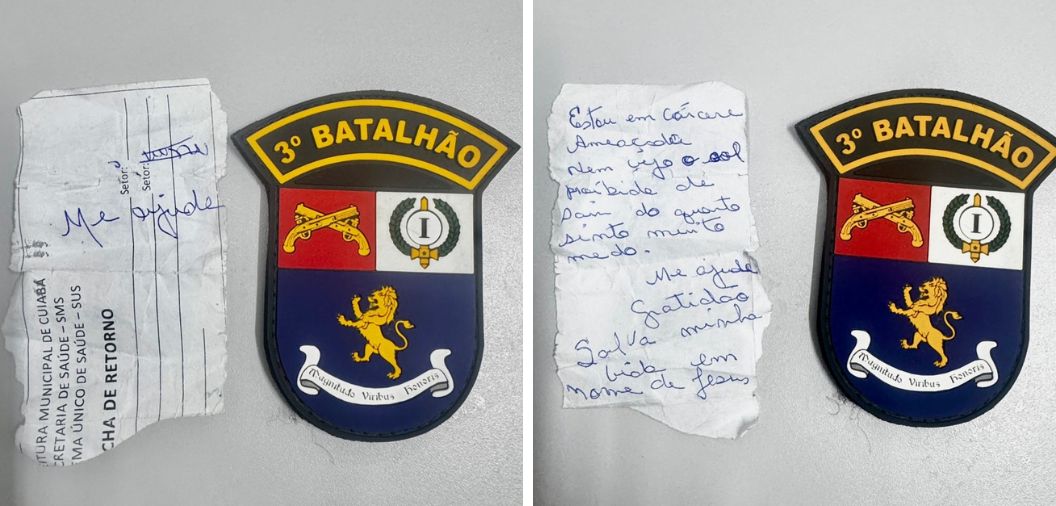 Me ajude
Setor:
Setor:
TURA MUNICIPAL DE CUIABÁ
CRETARIA DE SAÚDE – SMS
MA ÚNICO DE SAÚDE – SUS
CHA DE RETORNO
3º BATALHÃO
I
Magnitudo Viribus Honoris
Estou em cárcere
Ameaçada
Nem vejo o sol
proibida de
sair do quarto
sinto muito
medo.
Me ajude
Gratidão
Salva minha
vida em
nome de Jesus
3º BATALHÃO
I
Magnitudo Viribus Honoris